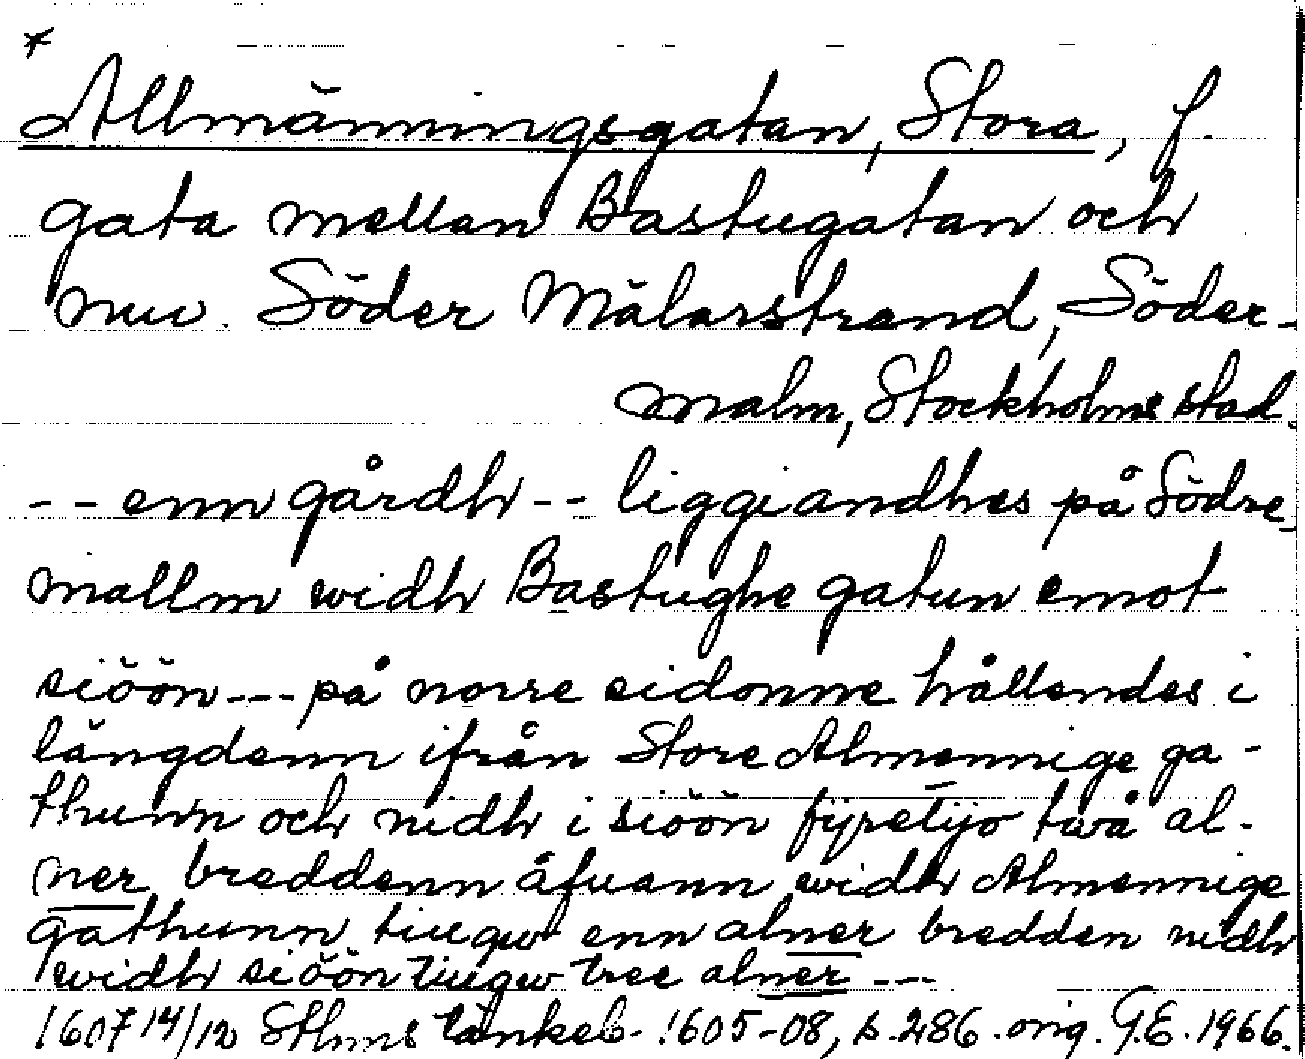 *
Allmänningsgatan, Stora, f.
gata mellan Bastugatan och
nuv. Söder Mälarstrand, Söder-
malm, Stockholms stad.
-- enn gårdh -- liggiandhes på Södre
mallm widh Bastughe gatun emot
siöön --- på norre sidonne hållendes i
längdenn ifrån Store Almennige ga-
thunn och nidh i siöön fÿretijo twå al-
ner breddenn åfuann widh Almennige
gathunn tiugw enn alner bredden nidh
widh siöön tiugw tree alner ---
1607 14/12 Sthms tänkeb. 1605-08, s. 286. orig. G.E. 1966.